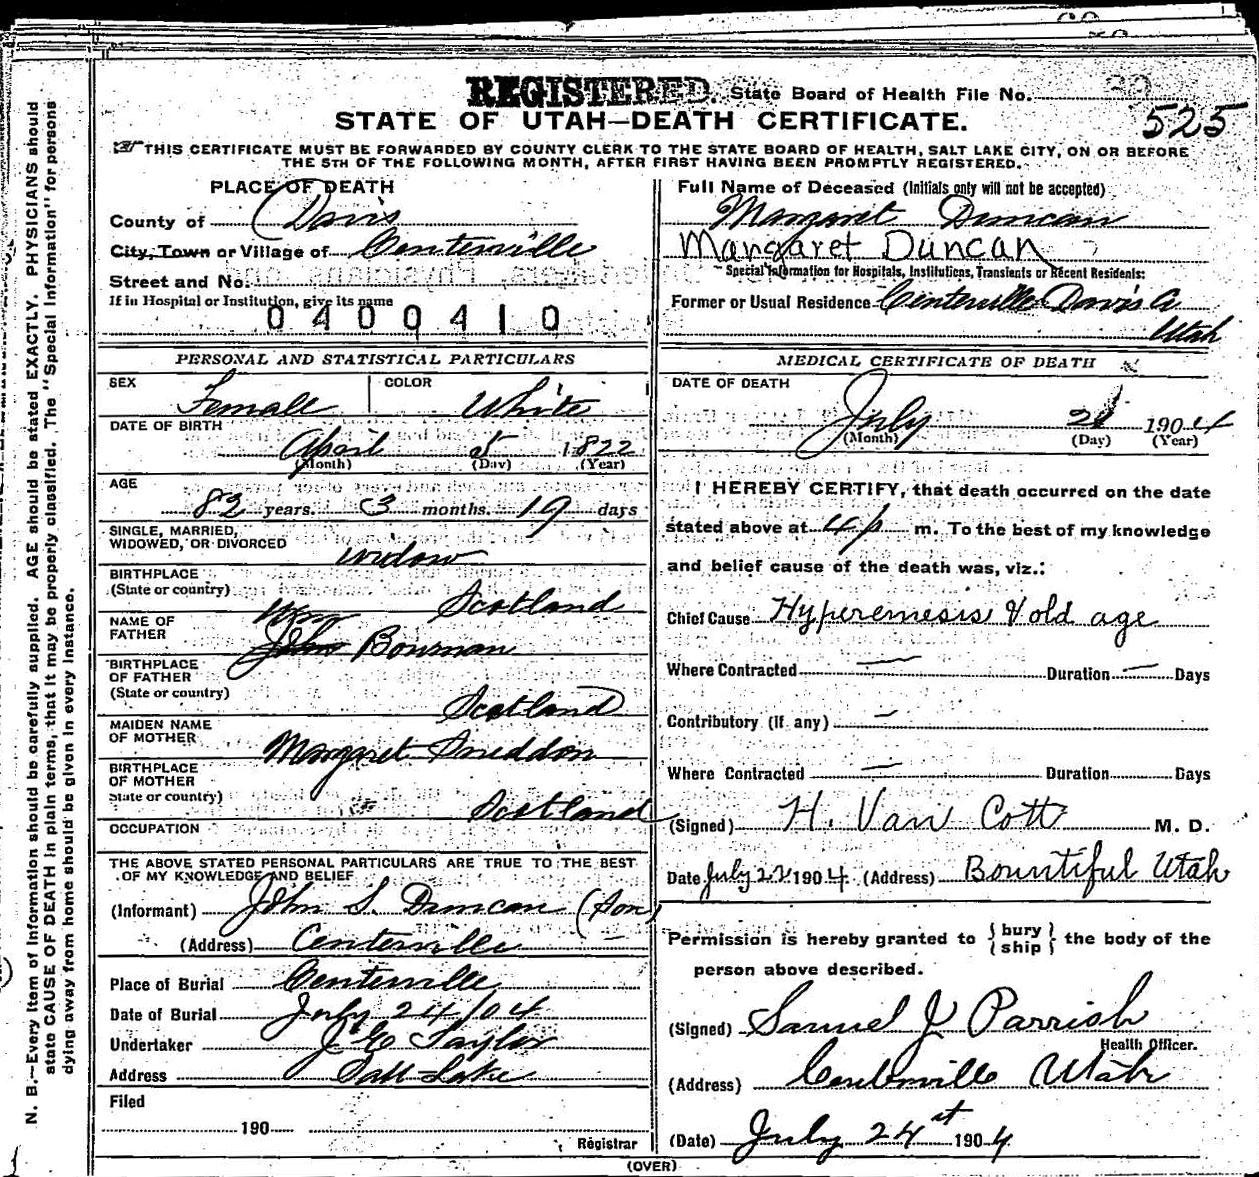 REGISTERED. State Board of Health File No.
525
STATE OF UTAH—DEATH CERTIFICATE.
THIS CERTIFICATE MUST BE FORWARDED BY COUNTY CLERK TO THE STATE BOARD OF HEALTH, SALT LAKE CITY, ON OR BEFORE
THE 5TH OF THE FOLLOWING MONTH, AFTER FIRST HAVING BEEN PROMPTLY REGISTERED.
PLACE OF DEATH
County of Davis
City, Town or Village of Centerville
Street and No.
If in Hospital or Institution, give its name
0400410
Full Name of Deceased (Initials only will not be accepted)
Margaret Duncan
Margaret Duncan
Special Information for Hospitals, Institutions, Transients or Recent Residents:
Former or Usual Residence Centerville Davis Co
Utah
PERSONAL AND STATISTICAL PARTICULARS
SEX Female COLOR White
DATE OF BIRTH
April 5 1822
(Month) (Day) (Year)
AGE
82 years. 3 months. 19 days
SINGLE, MARRIED,
WIDOWED, OR DIVORCED widow
BIRTHPLACE
(State or country) Scotland
NAME OF
FATHER Wm John Bowman
BIRTHPLACE
OF FATHER
(State or country) Scotland
MAIDEN NAME
OF MOTHER Margaret Sneddon
BIRTHPLACE
OF MOTHER
State or country) Scotland
OCCUPATION
THE ABOVE STATED PERSONAL PARTICULARS ARE TRUE TO THE BEST
OF MY KNOWLEDGE AND BELIEF
(Informant) John S. Duncan (Son)
(Address) Centerville
Place of Burial Centerville
Date of Burial July 24/04
Undertaker J E Taylor
Address Salt Lake
Filed
190
Registrar
MEDICAL CERTIFICATE OF DEATH
DATE OF DEATH
July 21 1904
(Month) (Day) (Year)
I HEREBY CERTIFY, that death occurred on the date
stated above at 4 p m. To the best of my knowledge
and belief cause of the death was, viz.:
Chief Cause Hyperemesis & old age
Where Contracted — Duration — Days
Contributory (if any) —
Where Contracted — Duration Days
(Signed) H. Van Cott M. D.
Date July 22 1904. (Address) Bountiful Utah
Permission is hereby granted to { bury ship } the body of the
person above described.
(Signed) Samuel J Parrish
Health Officer.
(Address) Centerville Utah
(Date) July 24st 1904
(OVER)
N. B.—Every item of information should be carefully supplied. AGE should be stated EXACTLY. PHYSICIANS should
state CAUSE OF DEATH in plain terms, that it may be properly classified. The "Special Information" for persons
dying away from home should be given in every instance.